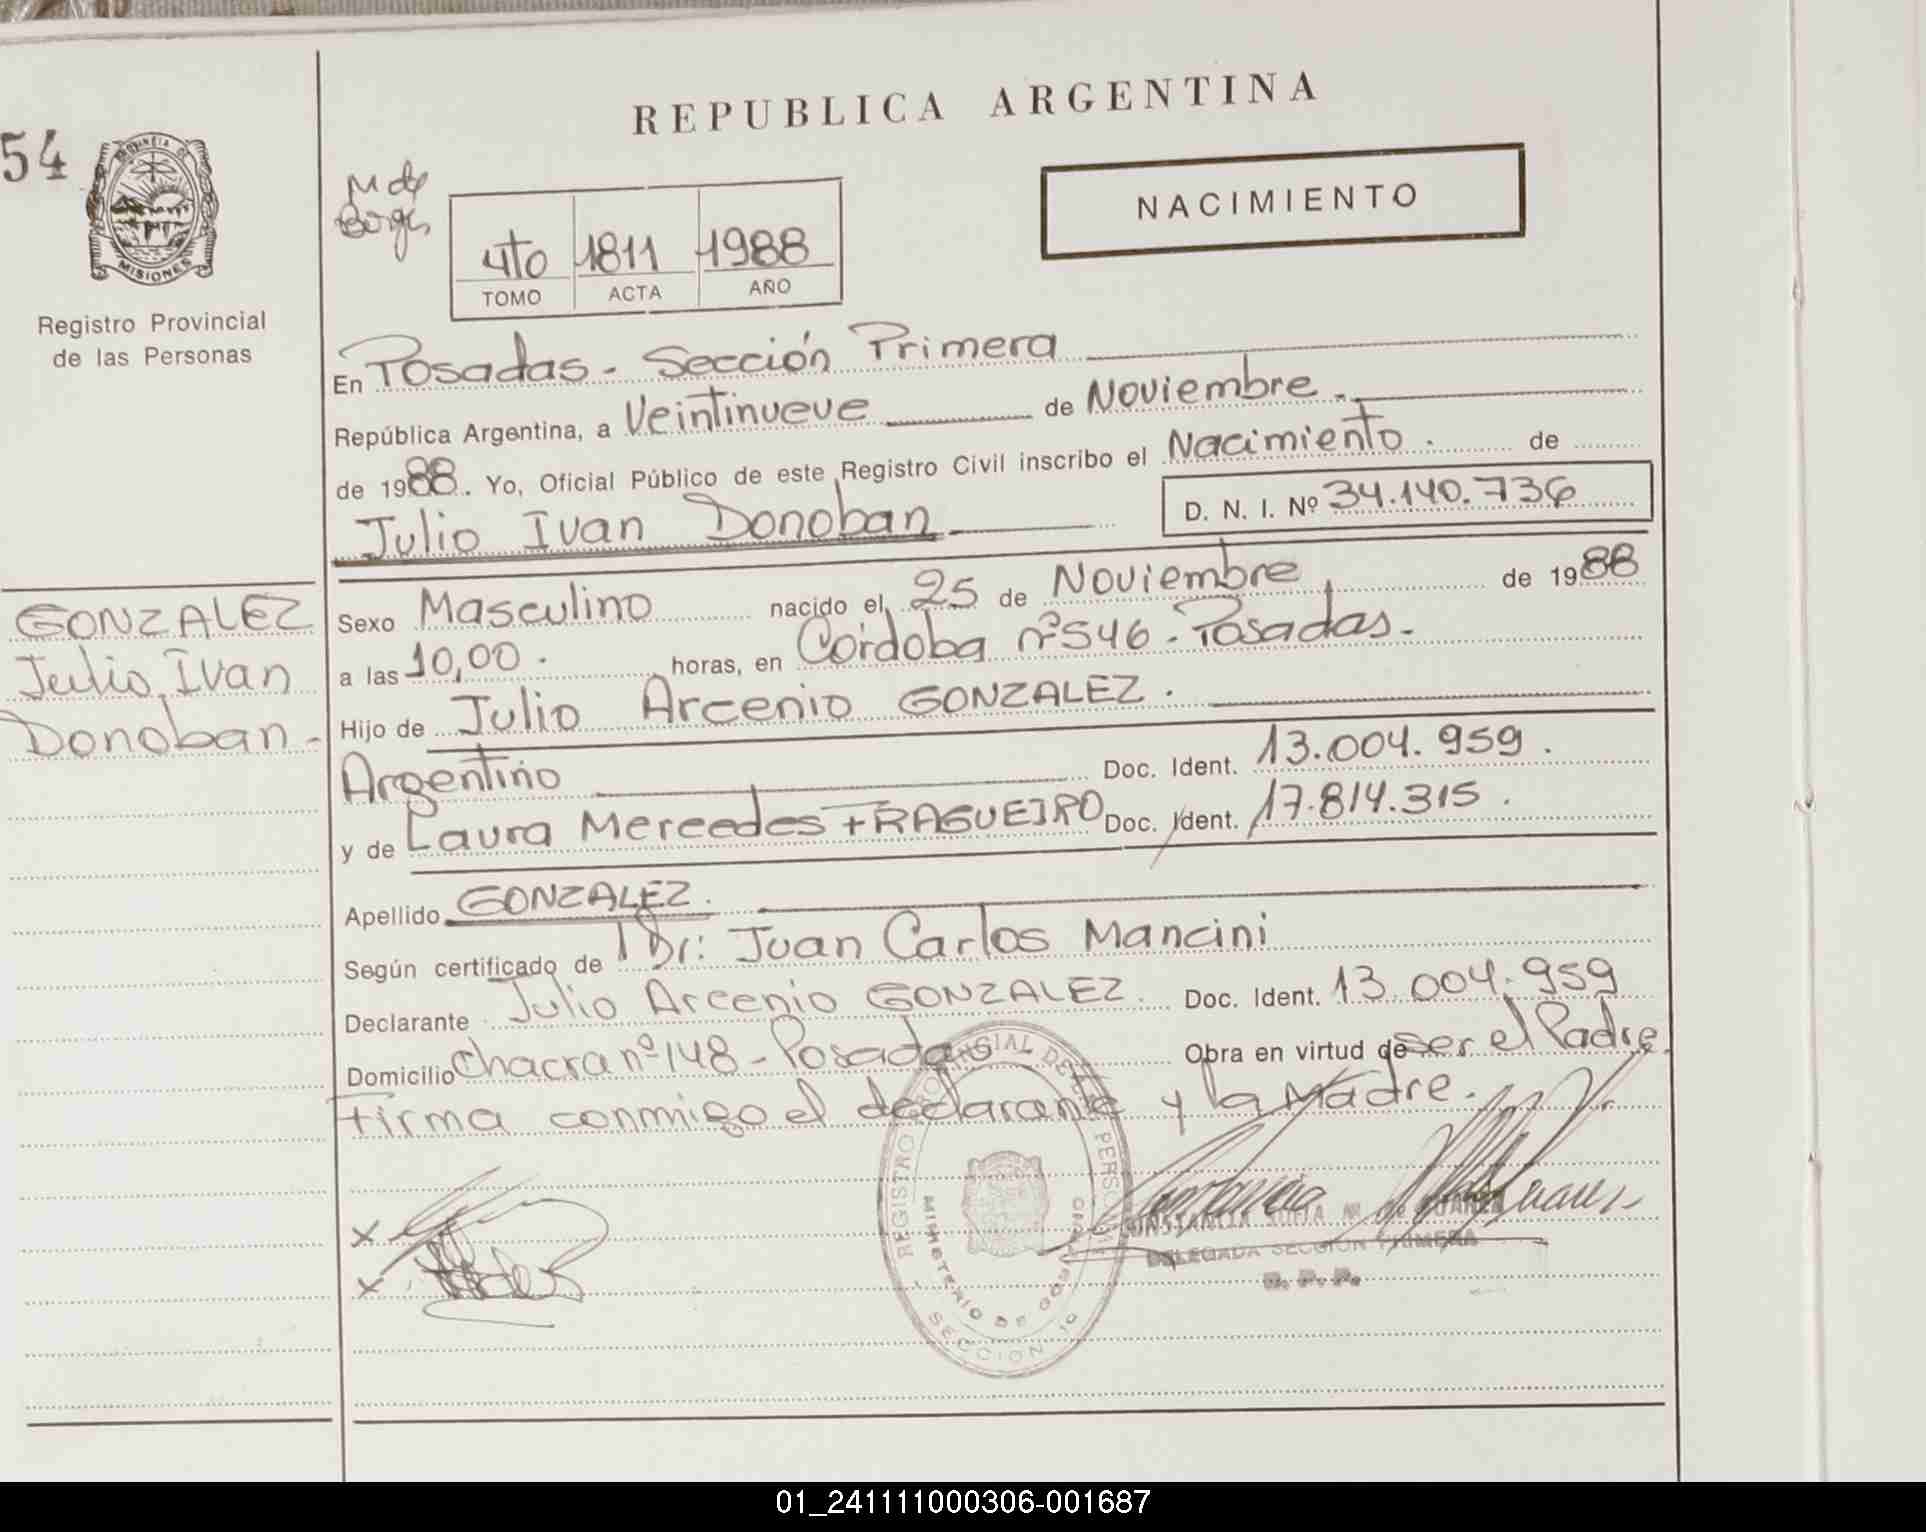 REPUBLICA ARGENTINA
54
PROVINCIA DE
MISIONES
Registro Provincial
de las Personas
NACIMIENTO
4to 1811 1988
TOMO ACTA AÑO
En Posadas - Sección Primera
República Argentina, a Veintinueve de Noviembre.
de 1988. Yo, Oficial Público de este Registro Civil inscribo el Nacimiento. de
Julio Ivan Donoban D. N. I. Nº 34.140.736
GONZALEZ
Julio Ivan
Donoban -
Sexo Masculino nacido el 25 de Noviembre de 1988
a las 10,00. horas, en Córdoba nº 546 - Posadas.
Hijo de Julio Arcenio GONZALEZ.
Argentino Doc. Ident. 13.004.959.
y de Laura Mercedes FRAGUEIRO Doc. Ident. 17.814.315.
Apellido GONZALEZ.
Según certificado de Dr: Juan Carlos Mancini
Declarante Julio Arcenio GONZALEZ. Doc. Ident. 13.004.959
Domicilio Chacra nº 148 - Posadas Obra en virtud de ser el Padre.
Firma conmigo el declarante y la Madre.
REGISTRO PROVINCIAL DE LAS PERSONAS
MINISTERIO DE GOBIERNO
SECCION 1º
X
X
CONSTANCIA SOFIA M. de SUAREZ
DELEGADA SECCION PRIMERA
R. P. P.
01_241111000306-001687